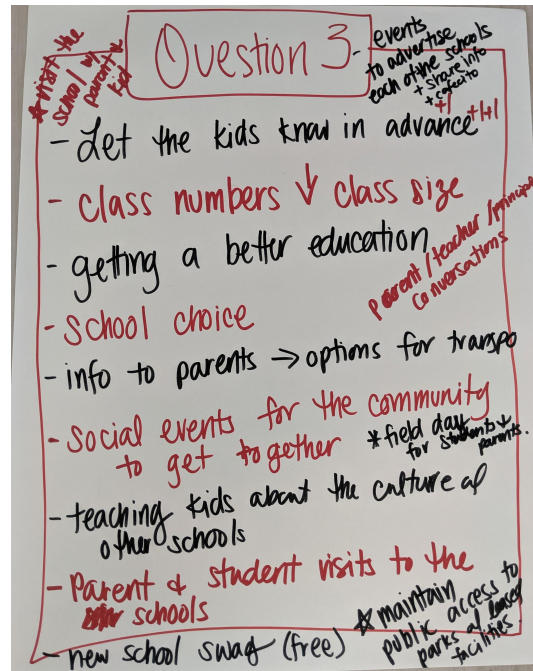 Question 3
* visit the
school w/
parent &
kid
- events
to advertise
each of the schools
+ share info
+ cafecito
+1
- Let the kids know in advance +1+1
- class numbers ↓ class size
- getting a better education
parent/teacher/principal
conversations
- school choice
- info to parents → options for transpo
- social events for the community
to get together
* field day
for students &
parents.
- teaching kids about the culture of
other schools
- Parent & student visits to the
schools
- new school swag (free)
* maintain
public access to
parks at leased
facilities.